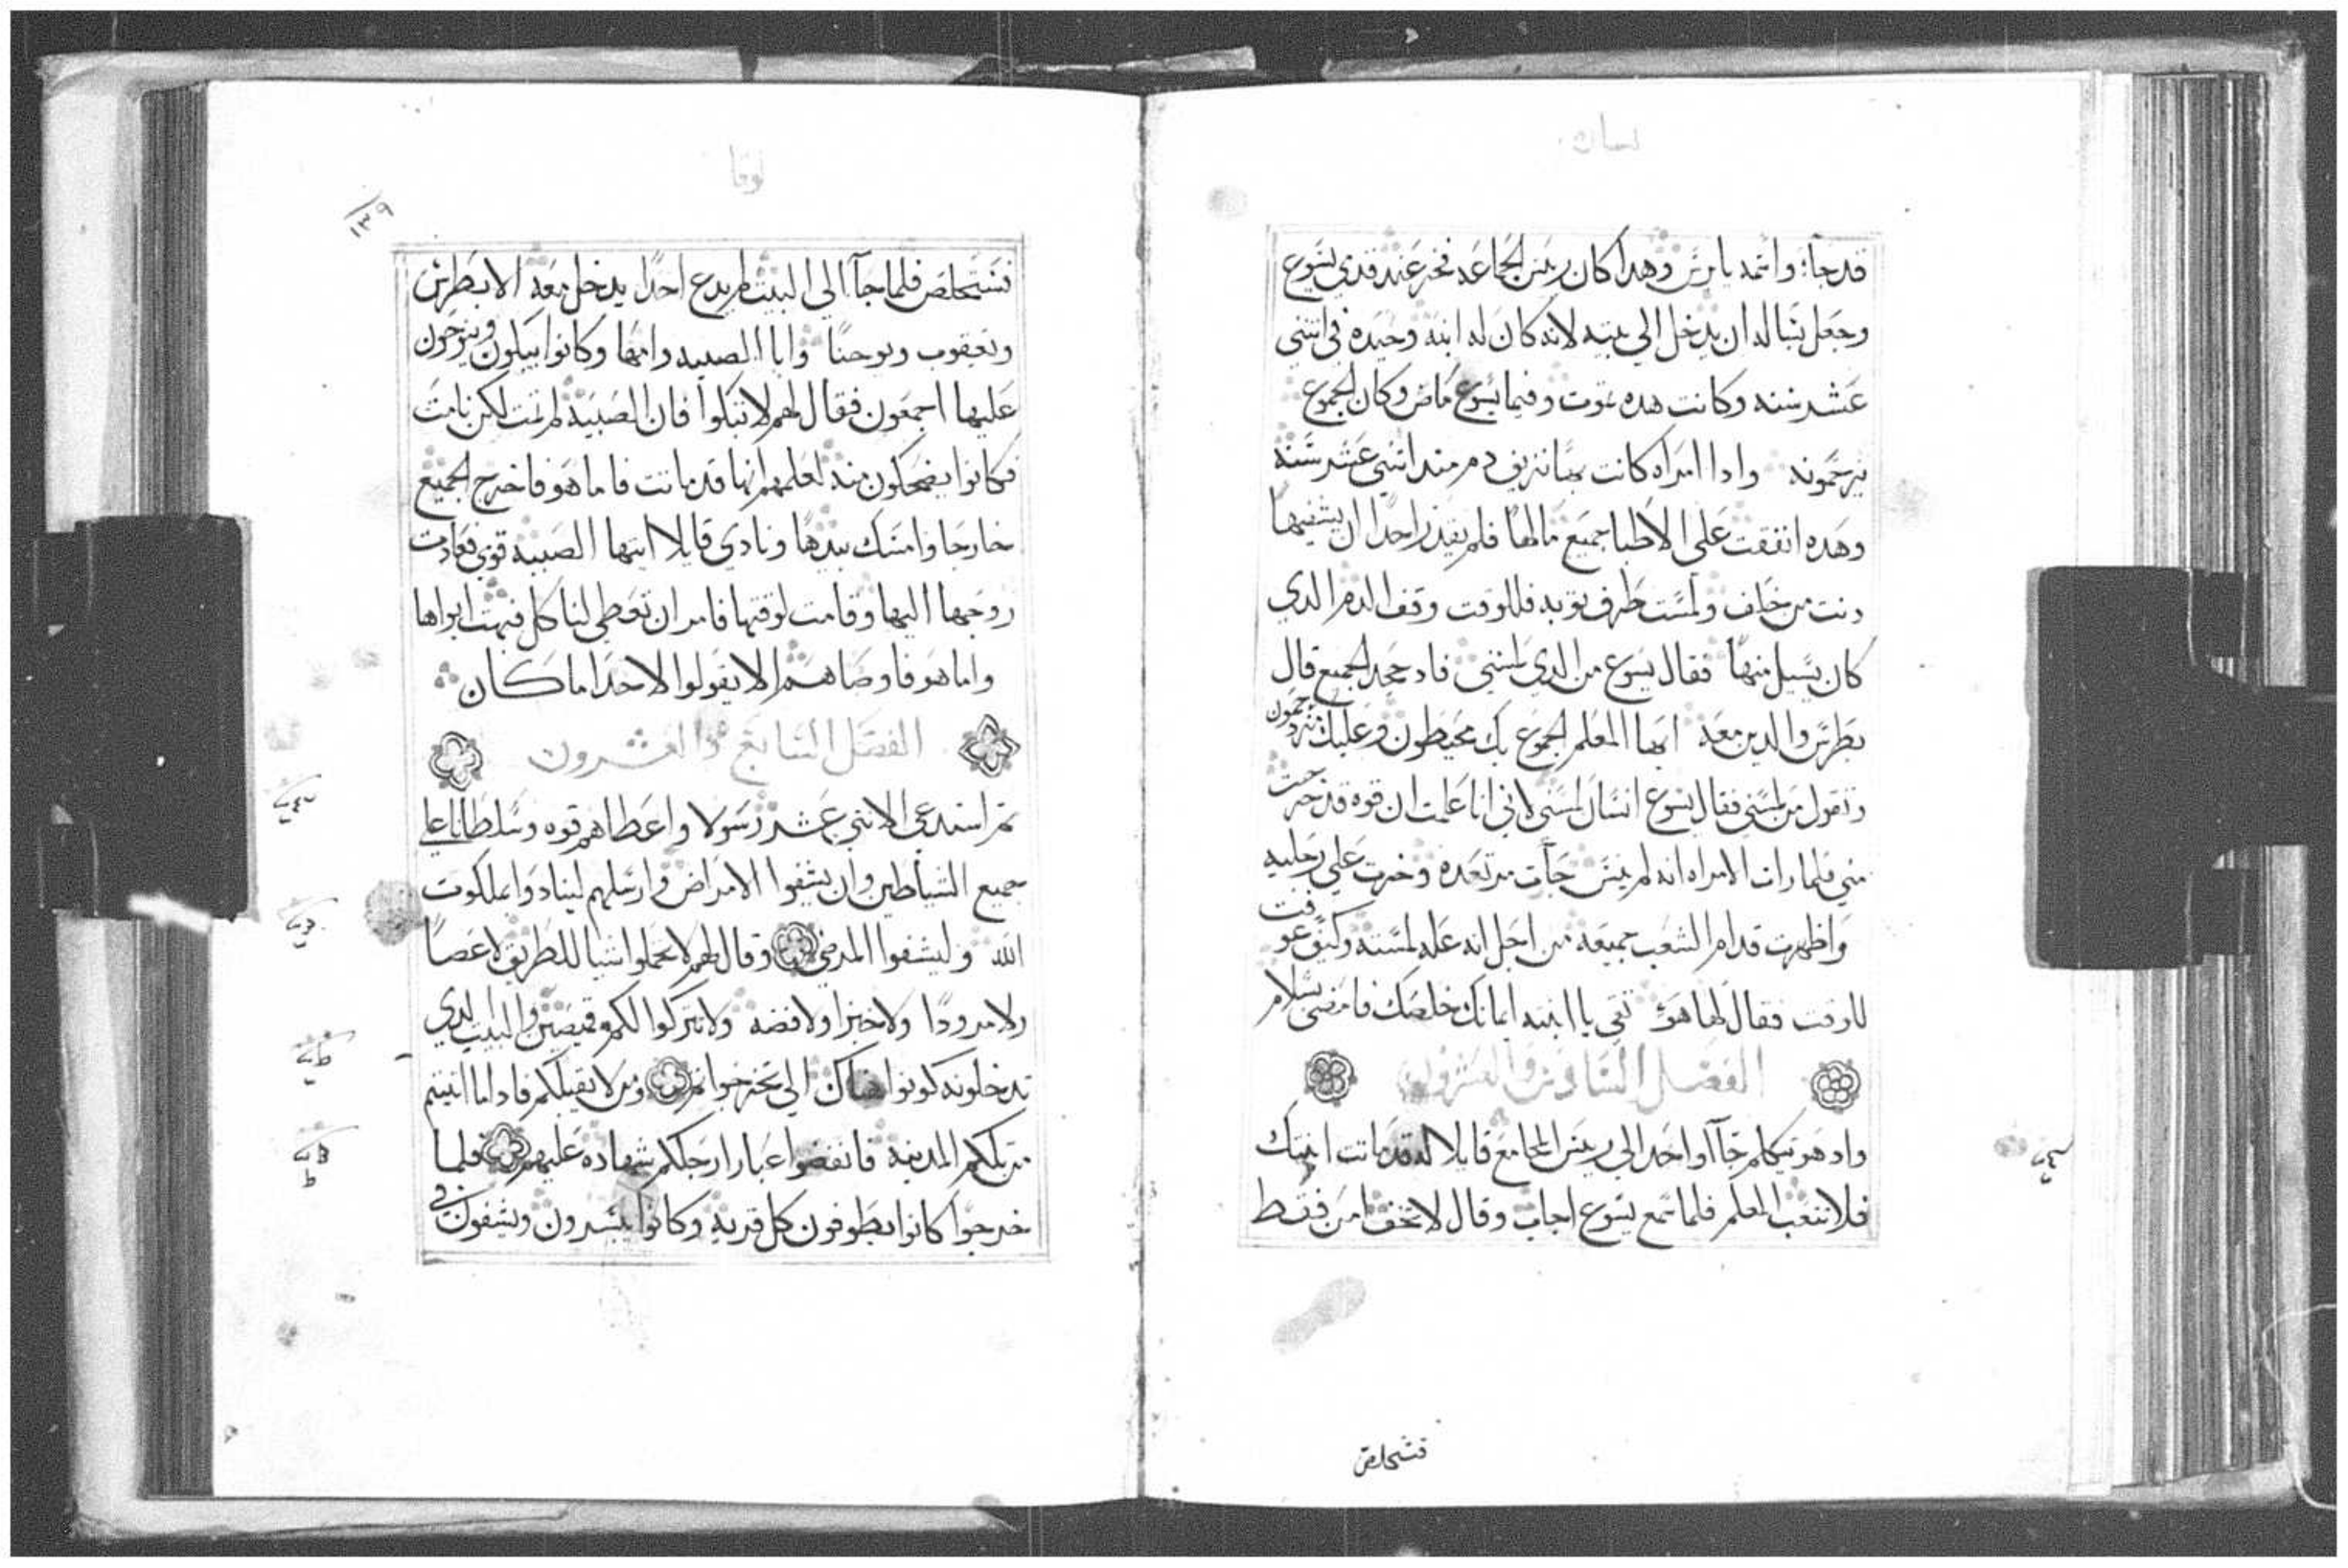 نسان
قد جا؛ واسمه يايرس وهدا كان رييس الجماعه فخر عند قدمي يسوع
وجعل يتساله ان يدخل الي بيته لانه كان له ابنه وحيده في اثني
عشر سنه وكانت هده تموت وفيما يسوع ماض وكان الجموع
يزحمونه وادا امراه كانت بها نزيف دم مند اثني عشر سنه
وهده انفقت علي الاطبا جميع مالها فلم يقدر احدا ان يشفيها
دنت من خلف ولمست طرف توبه فللوقت وقف الدم الدي
كان يسيل منها فقال يسوع من الدي لمسني فاد جحد الجميع قال
بطرس والدين معه ايها المعلم الجموع بك محيطون وعليك يزدحمون
وتقول من لمسني فقال يسوع انسان لمسني لاني انا علمت ان قوه قد خرجت
مني فلما رات الامراه انه لم ينس جات مرتعده وخرت علي رجليه
واظهرت قدام الشعب جميعه من اجل انه عله لمسته وكيف عوفت
للوقت فقال لها هو تقي يا ابنه ايمانك خلصك فامضي بسلام
الفصل السادس والعشرون
واد هو يتكلم جاا واحد الي رييس المجامع قايلا له قد ماتت ابنتك
فلا تتعب المعلم فلما سمع يسوع اجاب وقال لا تخف امن فقط
فتستخلص
لوقا
١٣٩
فتستخلص فلما جاا الي البيت لم يدع احدا يدخل معه الا بطرس
ويعقوب ويوحنا وابا الصبيه وامها وكانوا يبكون وينوحون
عليها اجمعون فقال لهم لا تبكوا فان الصبيه لم تمت لكن نامت
فكانوا يضحكون منه لعلمهم انها قد ماتت فاما هو فاخرج الجميع
خارجا وامسك بيدها ونادي قايلا ايتها الصبيه قومي فعادت
روحها اليها وقامت لوقتها فامر ان تعطي لتاكل فبهت ابواها
واما هو فاوصاهم الا يقولوا لاحد اما كان
الفصل السابع والعشرون
تم استدعي الاتني عشر رسولا واعطاهم قوه وسلطانا علي
جميع الشياطين وان يشفوا الامراض وارسلهم لينادوا بملكوت
الله وليشفوا المرضي وقال لهم لا تحملوا شيا للطريق لا عصا
ولا مرودا ولا خبزا ولا فضه ولا تتركوا لكم قميصين والبيت الدي
تدخلونه كونوا هناك الي تخرجوا تم ومن لا يقبلكم فاداما انيتم
من تلكم المدينه فانفضوا غبار ارجلكم شهاده عليهم فلما
خرجوا كانوا يطوفون كل قريه وكانوا يبشرون ويشفون في